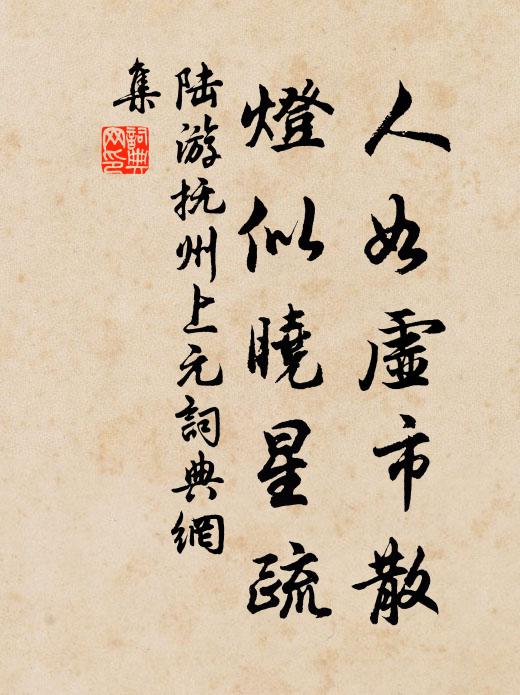 人如虛市散
燈似曉星疏
陸游抚州上元詞典網
集
詞典
网印